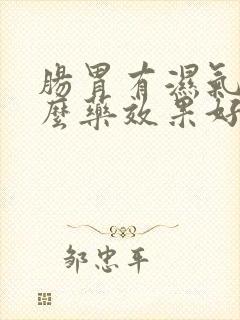 腸胃有濕氣
麼藥效果好
鄒忠平